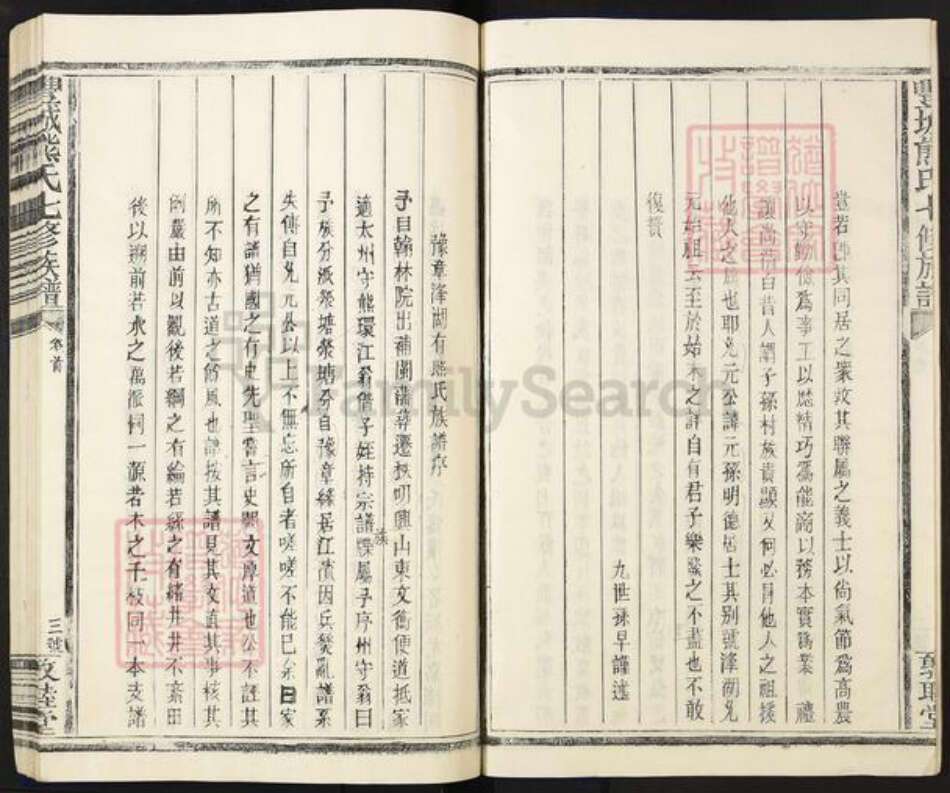 豐城熊氏七修族譜
敦睦堂
當若鄉其同居之衆故其聯屬之義士以尚氣節爲高農
以勤儉爲事工以歷精巧爲能商以務本實爲業禮
讓尚昔人謂子孫村族貴顯又何必冒他人之祖援
他人之族也耶允元公諱元孫明德居士其別號澤湖允
元始祖云至於始末之詳自有君子樂隲之不盡也不敢
復贅
九世孫早謹述
豫章澤湖有熊氏族譜序
予自翰林院出補閩藩尋遷秩明興山東文衡便道抵家
適太州守熊環江翁借子姪持宗譜牒屬予序州守翁曰
族
予族分派梁塘梁塘分自豫章緣居江濆因兵燹亂譜系
失傳自允元公以上不無忘所自者嗟嗟不能已余曰家
之有譜猶國之有史先聖嘗言史闕文厚道也公不誣其
所不知亦古道之餘風也諦按其譜見其文直其事核其
例嚴由前以觀後若綱之有綸若絲之有緒井井不紊田
後以遡前若水之萬派同一源若木之千枝同一本支譜
豐城熊氏七修族譜
卷首
三號
敦睦堂
FamilySearch